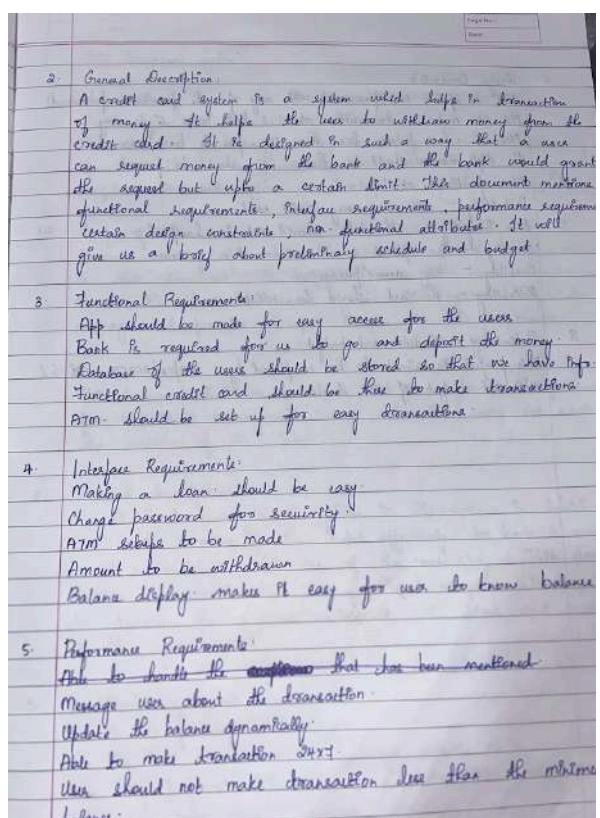 Page No.
Date
2. General Description:
A credit card system is a system which helps in transaction
of money. It helps the user to withdraw money from the
credit card. It is designed in such a way that a user
can request money from the bank and the bank would grant
the request but upto a certain limit. This document mentions
functional requirements, interface requirements, performance requireme
certain design constraints non-functional attributes. It will
give us a brief about preliminary schedule and budget
3 Functional Requirements:
App should be made for easy access for the users
Bank is required for us to go and deposit the money.
Database of the users should be stored so that we have info.
Functional credit card should be there to make transactions
ATM should be set up for easy transactions
4. Interface Requirements:
Making a loan should be easy
Change password for security.
ATM setups to be made
Amount to be withdrawn
Balance display. makes it easy for user to know balance
5. Performance Requirements:
Able to handle the that has been mentioned
Message user about the transaction.
Update the balance dynamically.
Able to make transaction 24x7.
User should not make transaction less than the minimu
balance.